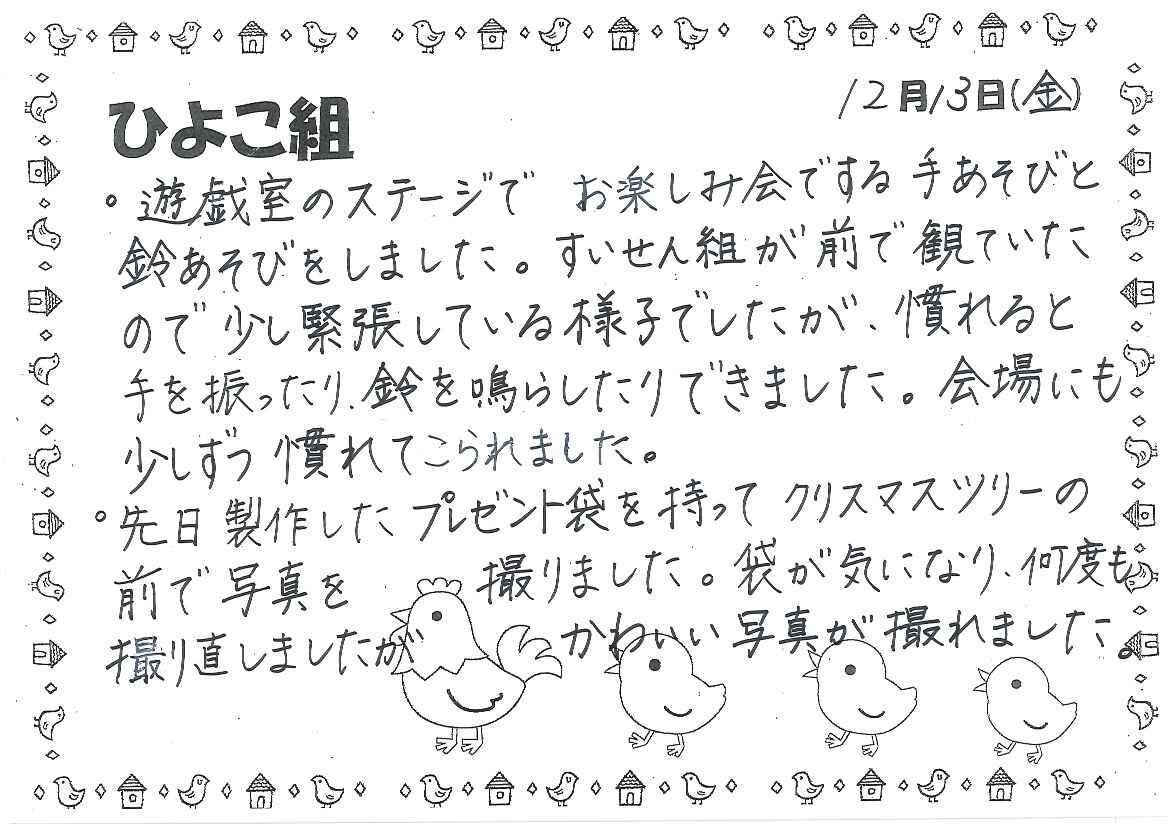 12月13日(金)
ひよこ組
。遊戯室のステージで お楽しみ会でする手あそびと
鈴あそびをしました。すいせん組が前で観ていた
ので少し緊張している様子でしたが、慣れると
手を振ったり、鈴を鳴らしたりできました。会場にも
少しずつ慣れてこられました。
。先日製作したプレゼント袋を持ってクリスマスツリーの
前で写真を 撮りました。袋が気になり、何度も
撮り直しましたが かわいい写真が撮れました。